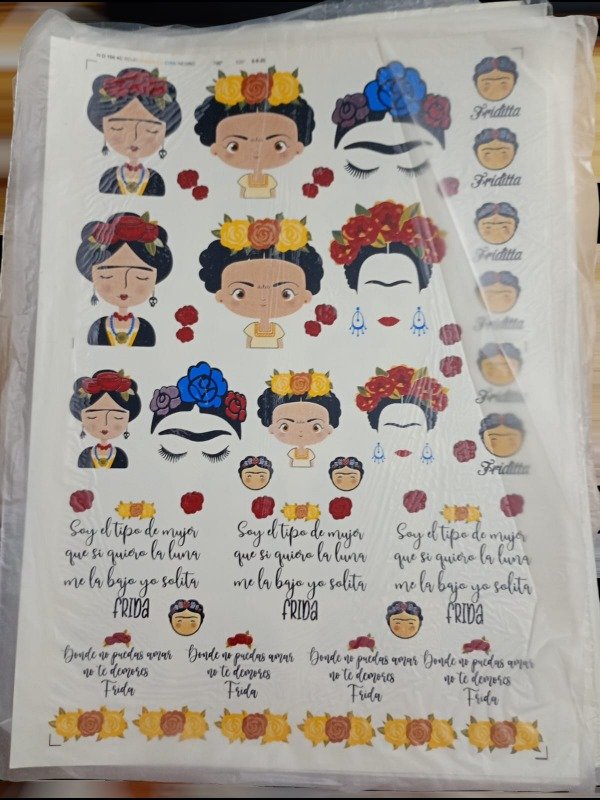 Friditta
Friditta
Friditta
Friditta
Friditta
Friditta
Soy el tipo de mujer
que si quiero la luna
me la bajo yo solita
FRIDA
Soy el tipo de mujer
que si quiero la luna
me la bajo yo solita
FRIDA
Soy el tipo de mujer
que si quiero la luna
me la bajo yo solita
FRIDA
Donde no puedas amar
no te demores
Frida
Donde no puedas amar
no te demores
Frida
Donde no puedas amar
no te demores
Frida
Donde no puedas amar
no te demores
Frida